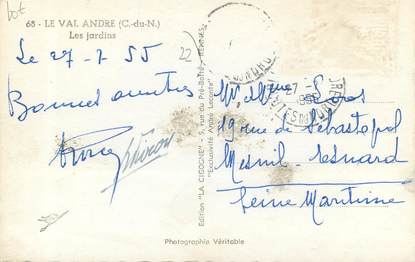 lot
68 - LE VAL ANDRE (C.-du-N.)
Les jardins
Le 27-7-55
22
Bonnes amitiés
Edition "LA CIGOGNE" - 5, rue du Pré-Botté, RENNES
"Exclusivité André Leconte"
Photographie Véritable
19 rue de Sébastopol
Mesnil-Esnard
Seine Maritime